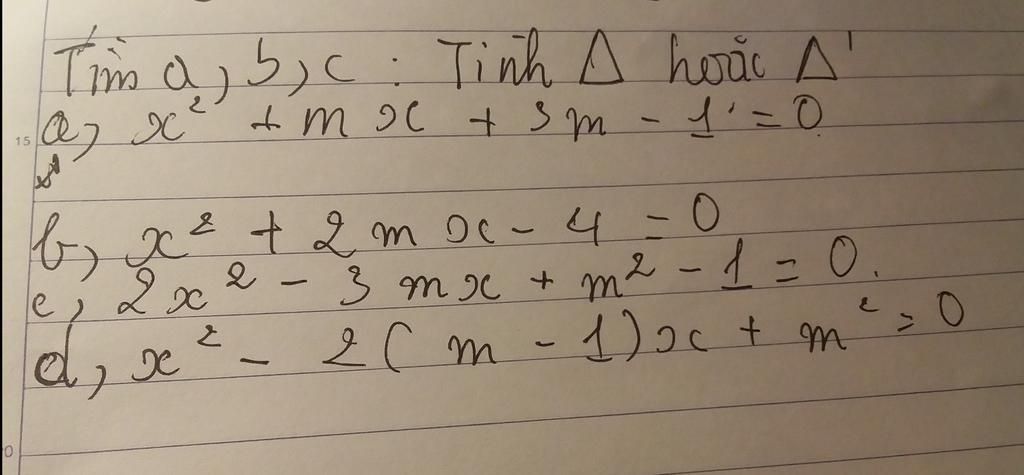 Tìm a, b, c : Tính Δ hoặc Δ'
a, x² + m x + 3m - 1 = 0
15
b, x² + 2 m x - 4 = 0
c, 2x² - 3 m x + m² - 1 = 0.
d, x² - 2 ( m - 1) x + m² = 0